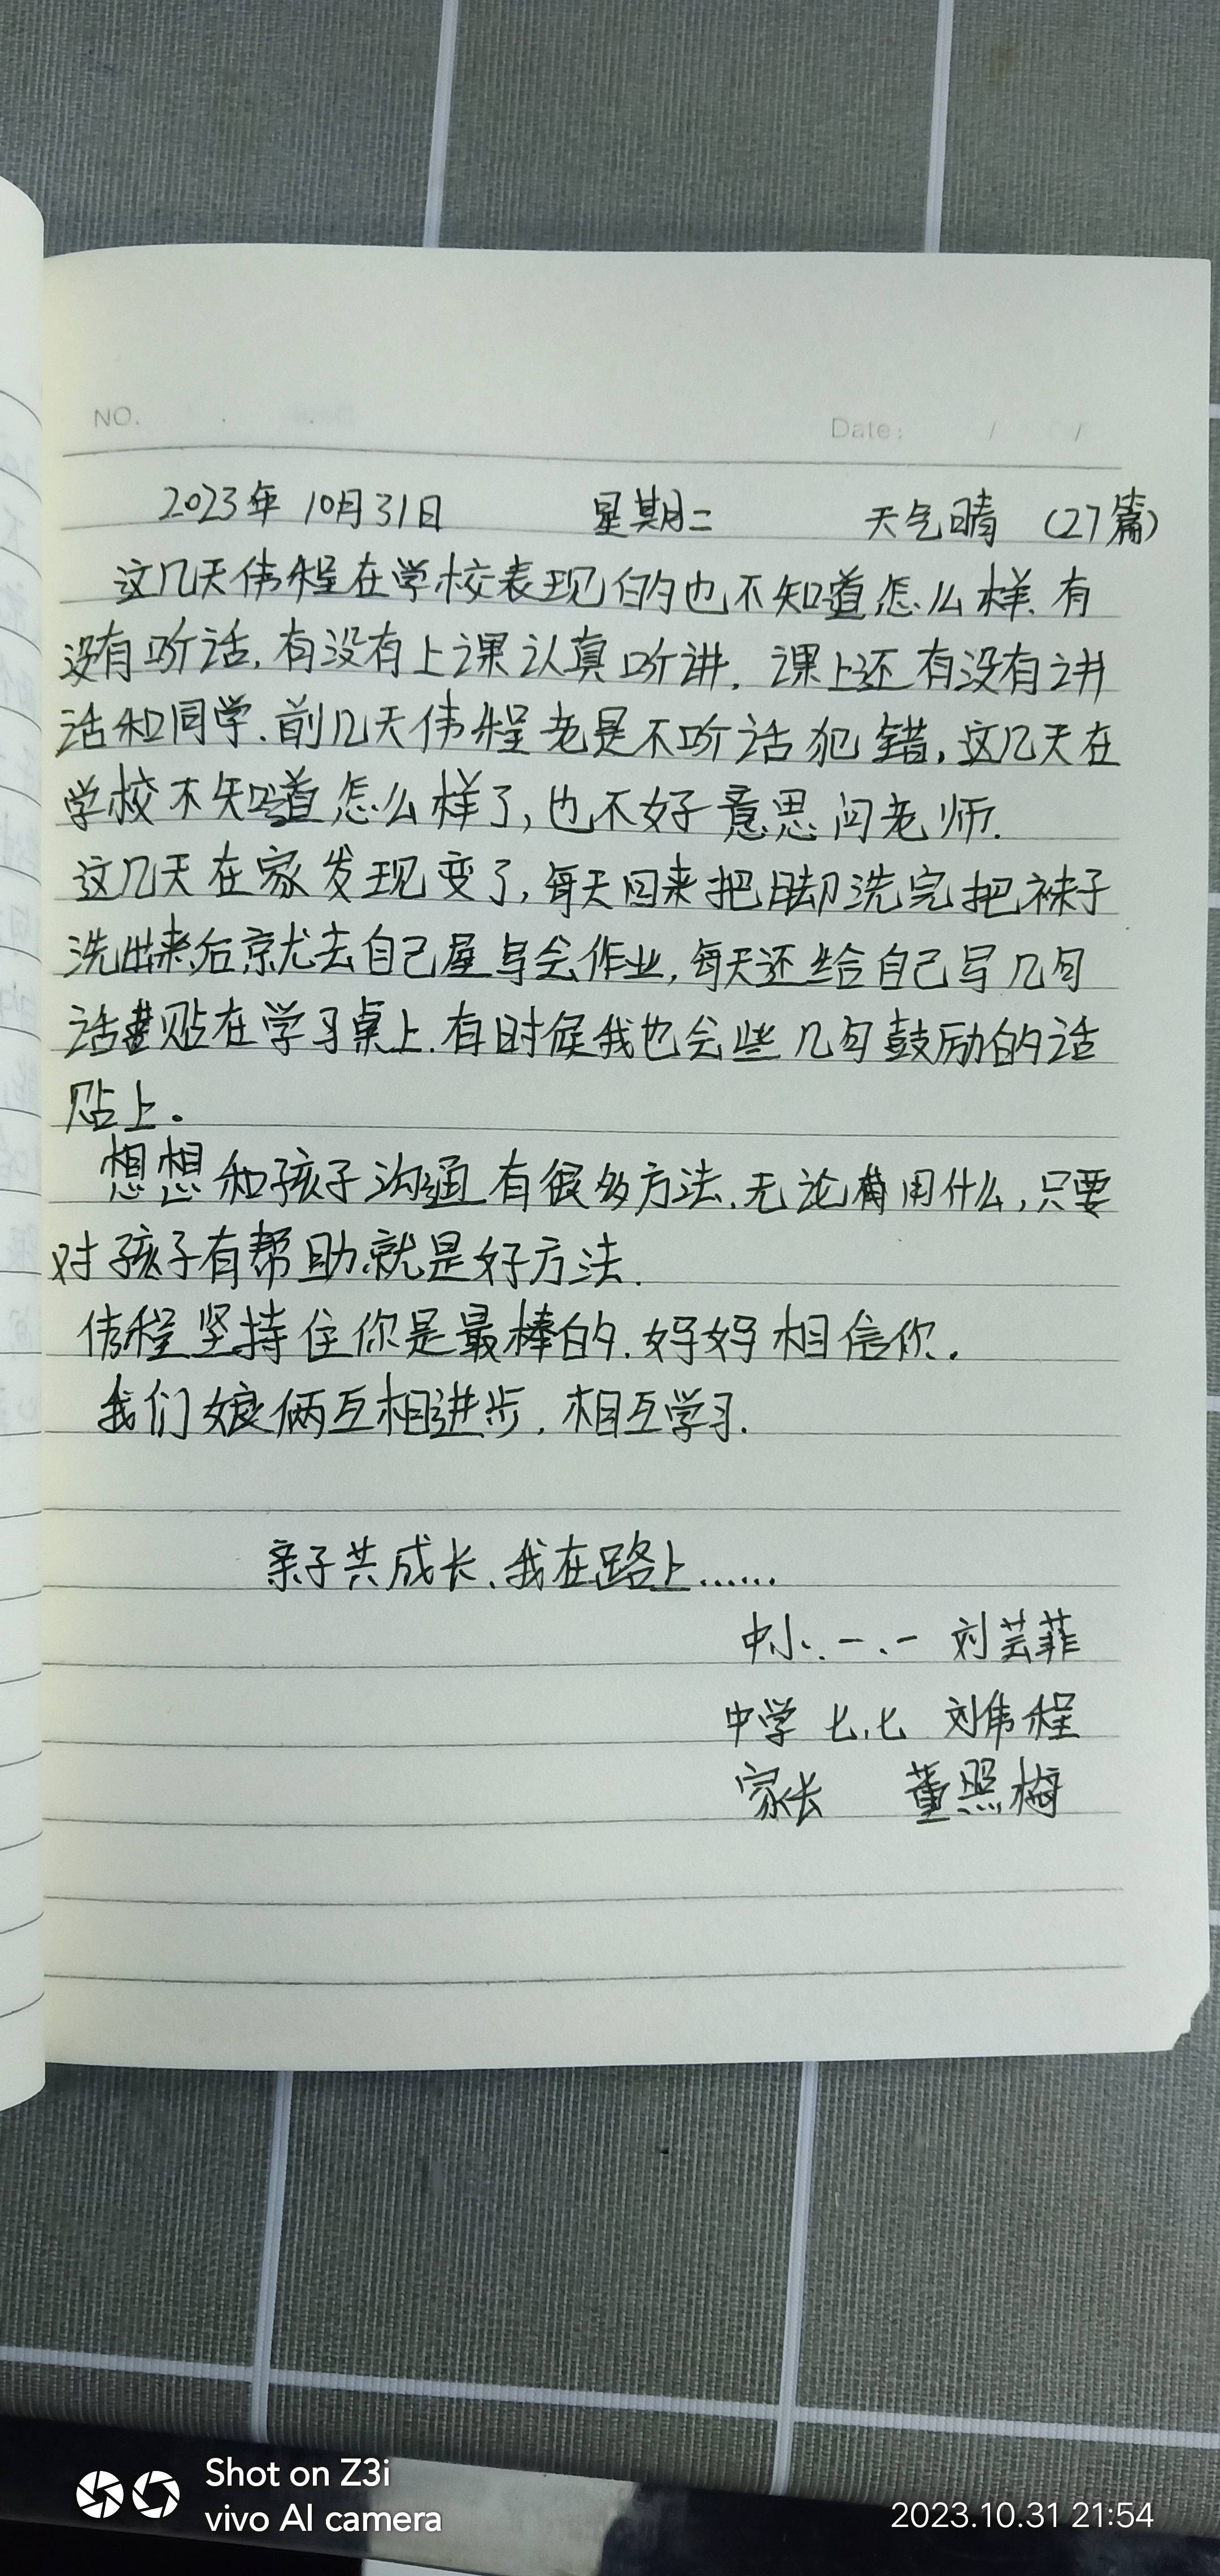 NO.
Date: / /
2023年 10月31日 星期二 天气晴 (27篇)
这几天伟程在学校表现的也不知道怎么样.有
没有听话.有没有上课认真听讲.课上还有没有讲
话和同学.前几天伟程老是不听话犯错,这几天在
学校不知道怎么样了,也不好意思问老师.
这几天在家发现变了,每天回来把脚洗完把袜子
洗出来后就去自己屋写会作业,每天还给自己写几句
话贴在学习桌上.有时候我也会些几句鼓励的话
贴上。
想想和孩子沟通有很多方法.无论用什么,只要
对孩子有帮助.就是好方法.
伟程坚持住你是最棒的.妈妈相信你.
我们娘俩互相进步.相互学习.
亲子共成长、我在路上……
中小.一.一 刘芸菲
中学 七.七 刘伟程
家长 董照梅
Shot on Z3i
vivo AI camera
2023.10.31 21:54